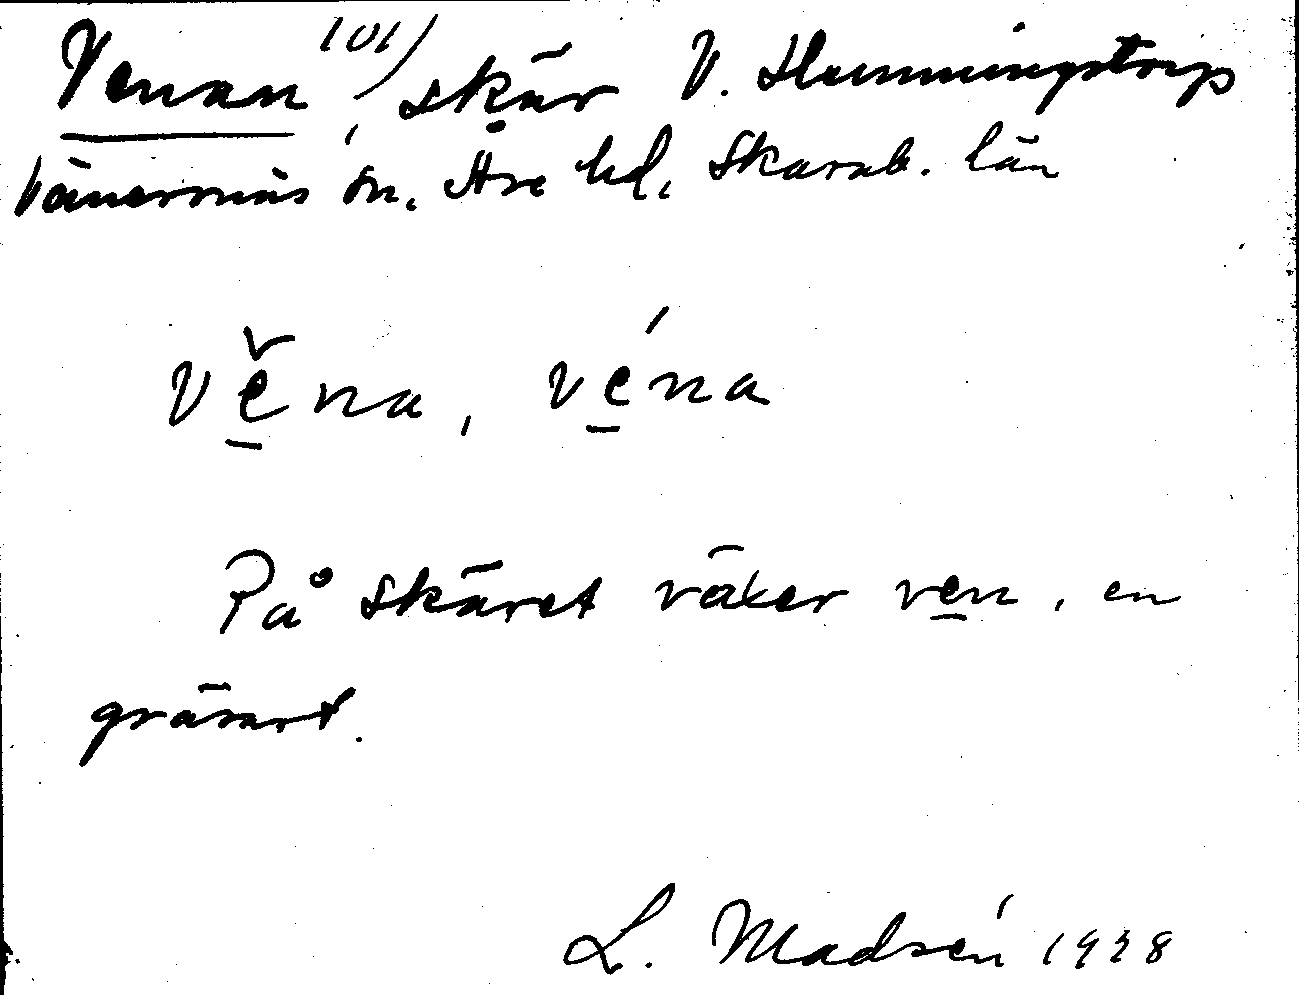 Venan 101), skär V. Hemmingstorp
Vänersnäs sn. Åse hd, Skarab. län
vě̱na, vé̱na
På skäret växer ve̱n, en
gräsart.
L. Madsén 1938